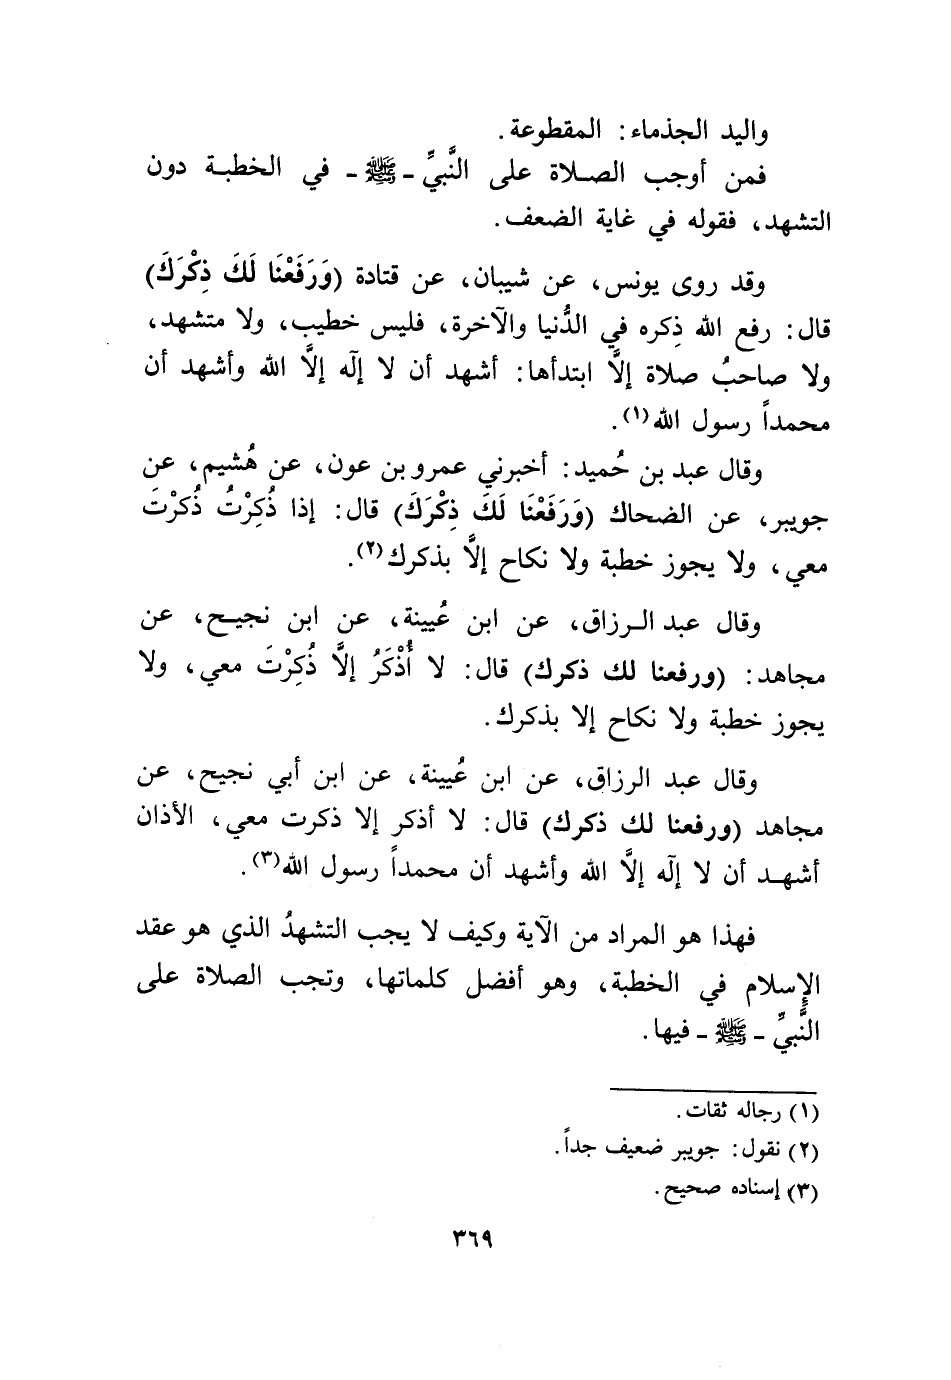 واليد الجذماء: المقطوعة.
فمن أوجب الصلاة على النَّبيِّ ـ ﷺ ـ في الخطبة دون
التشهد، فقوله في غاية الضعف.
وقد روى يونس، عن شيبان، عن قتادة (وَرَفَعْنَا لَكَ ذِكْرَكَ)
قال: رفع الله ذِكره في الدُّنيا والآخرة، فليس خطيب، ولا متشهد،
ولا صاحبُ صلاة إلَّا ابتدأها: أشهد أن لا إلٓه إلَّا الله وأشهد أن
محمداً رسول الله(١).
وقال عبد بن حُميد: أخبرني عمرو بن عون، عن هُشيم، عن
جويبر، عن الضحاك (وَرَفَعْنَا لَكَ ذِكْرَكَ) قال: إذا ذُكِرْتُ ذُكِرْتَ
معي، ولا يجوز خطبة ولا نكاح إلَّا بذكرك(٢).
وقال عبد الرزاق، عن ابن عُيينة، عن ابن نجيح، عن
مجاهد: (ورفعنا لك ذكرك) قال: لا أُذْكَرُ إلَّا ذُكِرْتَ معي، ولا
يجوز خطبة ولا نكاح إلا بذكرك.
وقال عبد الرزاق، عن ابن عُيينة، عن ابن أبي نجيح، عن
مجاهد (ورفعنا لك ذكرك) قال: لا أذكر إلا ذكرت معي، الأذان
أشهد أن لا إلٓه إلَّا الله وأشهد أن محمداً رسول الله(٣).
فهذا هو المراد من الآية وكيف لا يجب التشهدُ الذي هو عقد
الإسلام في الخطبة، وهو أفضل كلماتها، وتجب الصلاة على
النَّبيِّ ـ ﷺ ـ فيها.
(١) رجاله ثقات.
(٢) نقول: جويبر ضعيف جداً.
(٣) إسناده صحيح.
٣٦٩